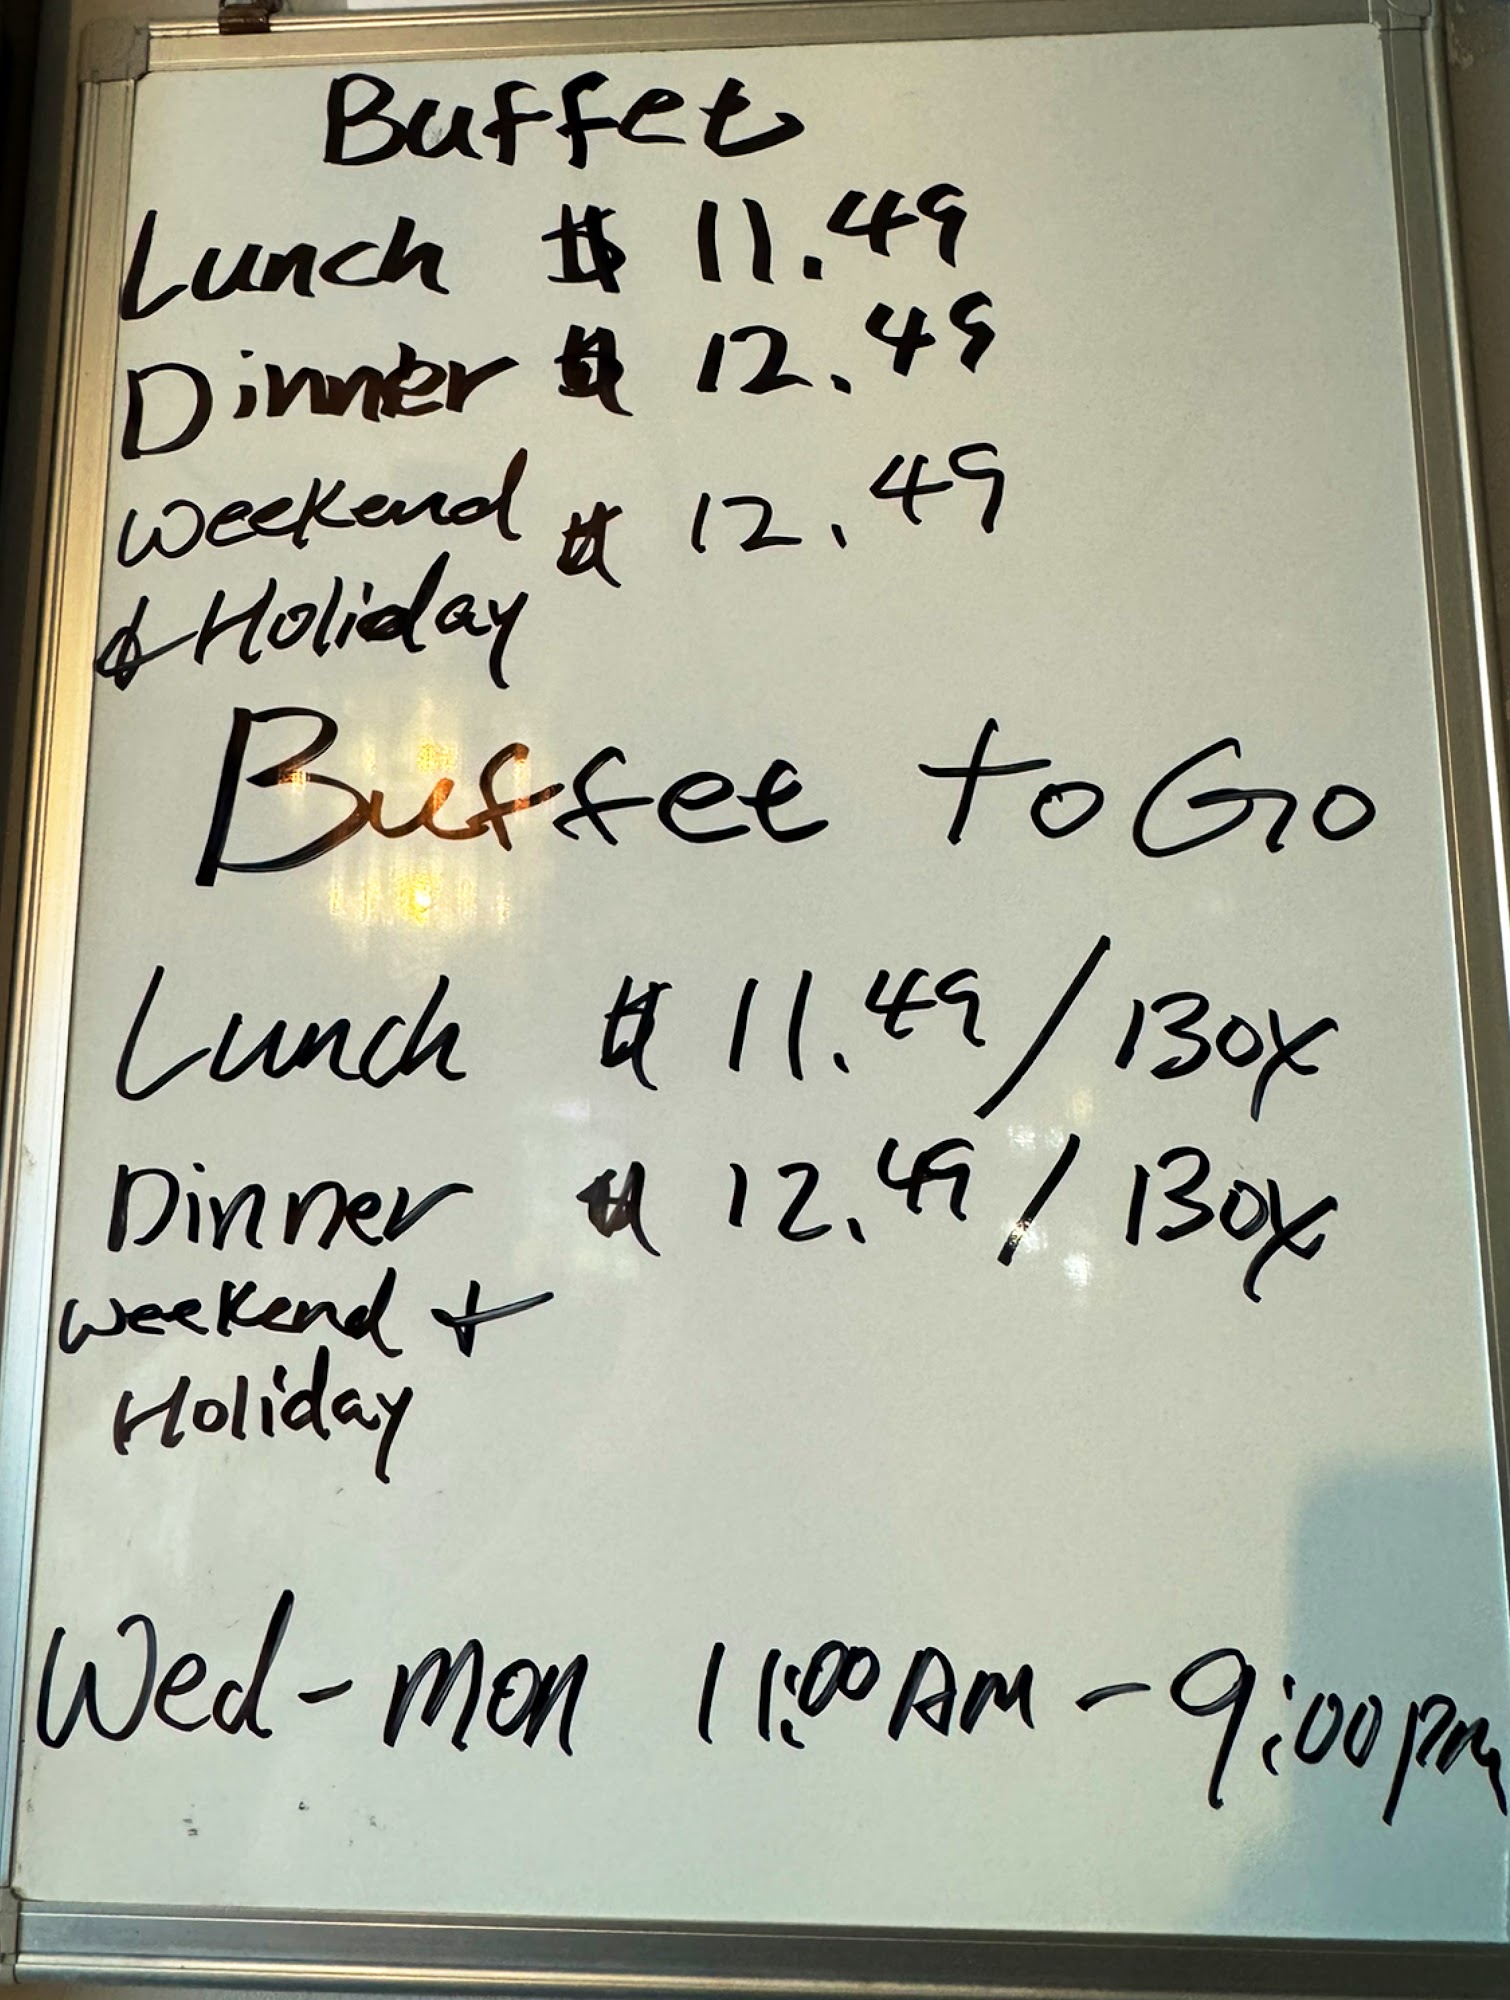 Buffet
Lunch $ 11.49
Dinner $ 12.49
Weekend $ 12.49
& Holiday
Buffet to Go
Lunch $ 11.49 / Box
Dinner $ 12.49 / Box
Weekend +
Holiday
Wed - Mon 11:00 AM - 9:00 PM